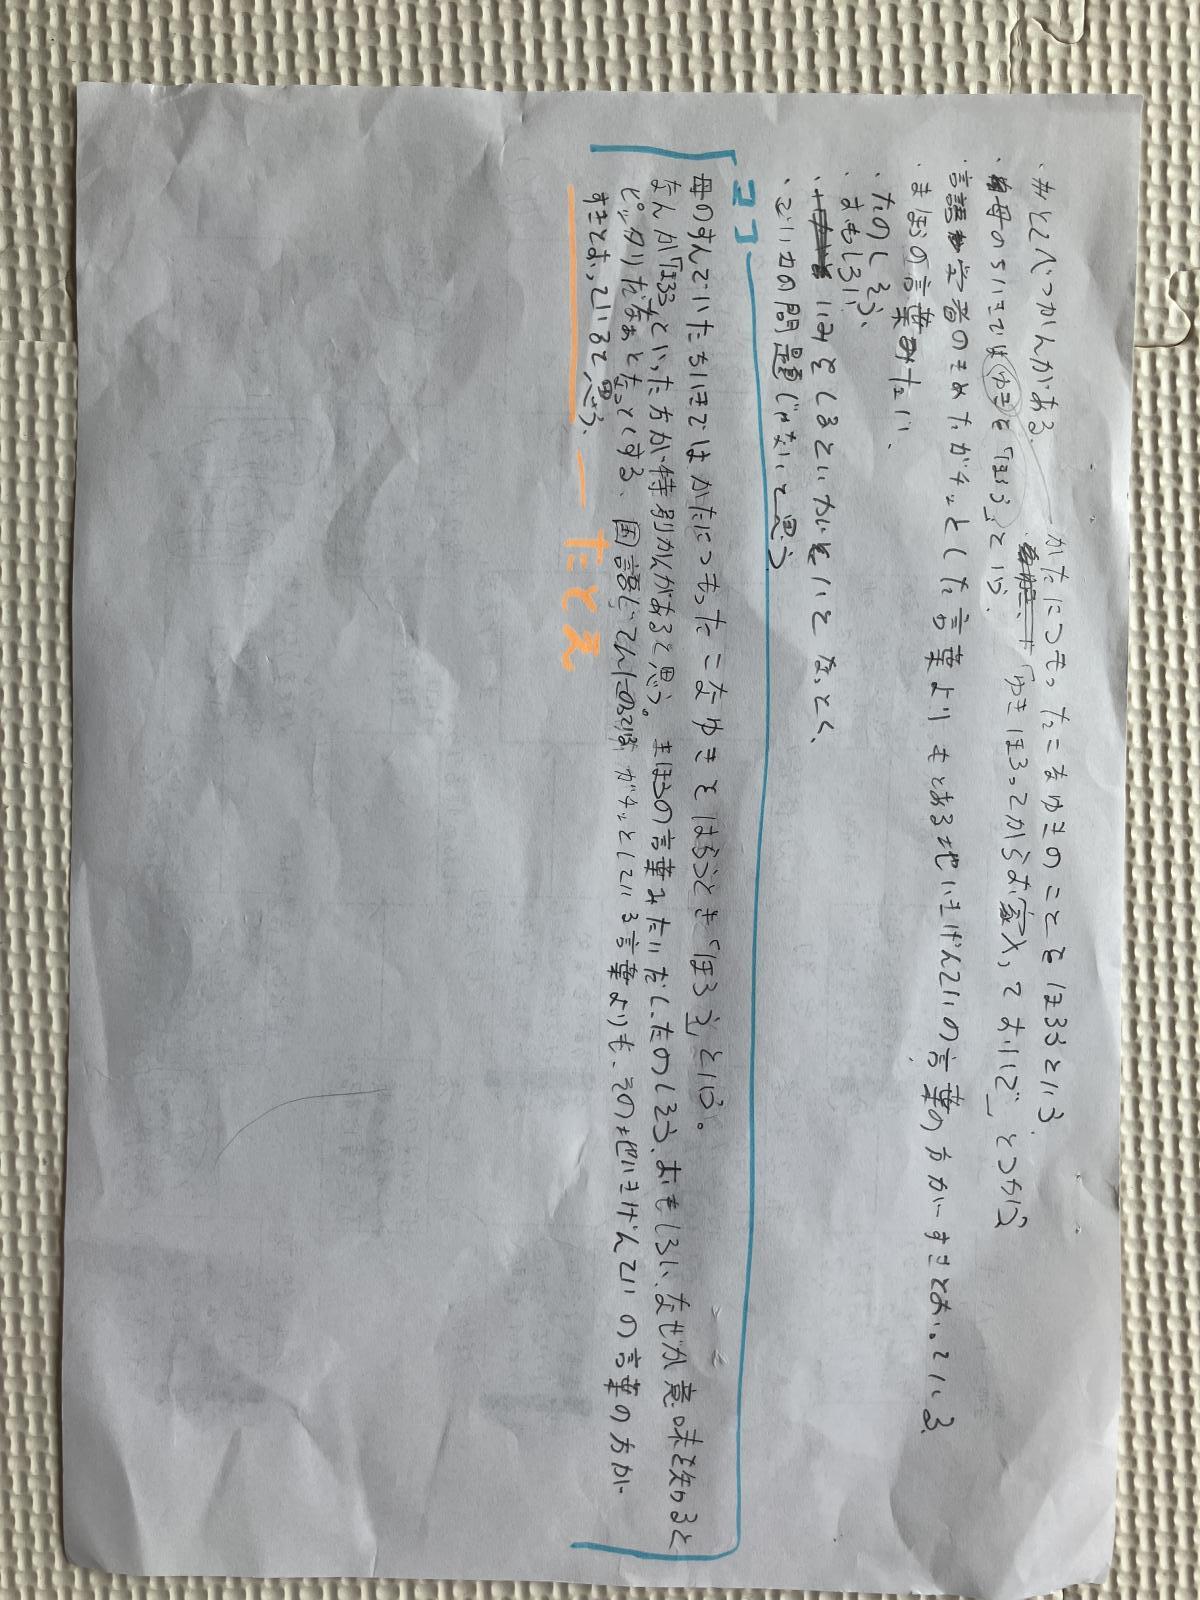 ・なんかとくべつかんがある。
かたにつもったこなゆきのことをほろるという
・母のちいきではゆきを「ほろう」という。
「ゆきほろってからお家入っておいで」とつかう
・言語学者のきめたガチッとした言葉よりもとある地いきげんていの言葉の方がすきとおっている
・まほうの言葉みたい、
・たのしそう、
おもしろい
・いみをしるといがいといとなっとく、
・ごいカの問題じゃないと思う
ココ
母のすんでいたちいきではかたにつもったこなゆきをはらうとき「ほろう」という。
なんか「ほろう」といった方が特別かんがあると思う。まほうの言葉みたいだし、たのしそう、おもしろい、なぜか意味を知ると
ピッタリだなぁとなっとくする、国語じてんにのっているガチッとしている言葉よりも、その地いきげんていの言葉の方が
すきとおっていると思う、
たとえ